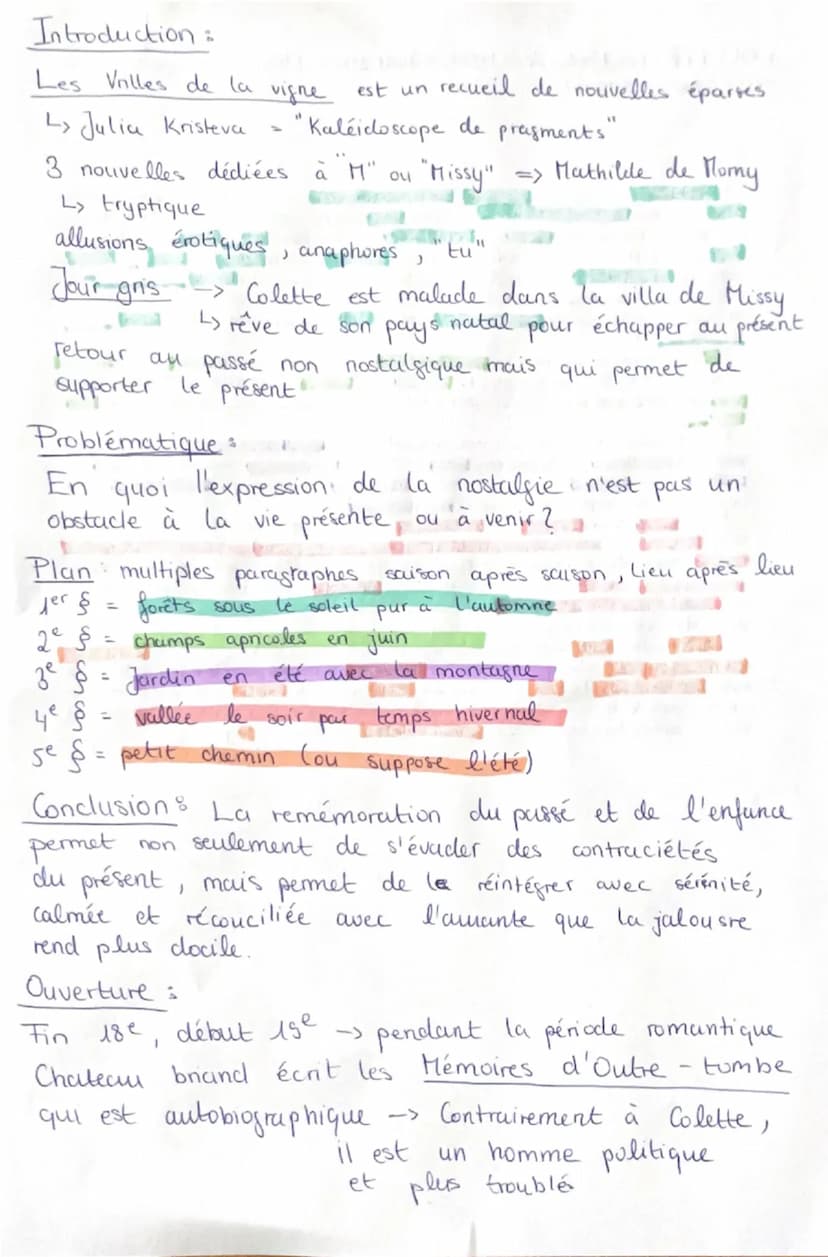 Introduction :
Les Vrilles de la vigne est un recueil de nouvelles éparses
↳ Julia Kristeva = "Kaléidoscope de pragments"
3 nouvelles dédiées à "M" ou "Missy" => Mathilde de Morny
↳ tryptique
allusions érotiques, anaphores, "tu"
Jour gris --> Colette est malade dans la villa de Missy
↳ rêve de son pays natal pour échapper au présent
retour au passé non nostalgique mais qui permet de
supporter le présent
Problématique :
En quoi l'expression de la nostalgie n'est pas un
obstacle à la vie présente ou à venir ?
Plan : multiples paragraphes saison après saison, lieu après lieu
1er § = forêts sous le soleil pur à l'automne
2e § = champs apricoles en juin
3e § = Jardin en été avec la montagne
4e § = vallée le soir par temps hivernal
5e § = petit chemin (ou suppose l'été)
Conclusion : La remémoration du passé et de l'enfance
permet non seulement de s'évader des contraciétés
du présent, mais permet de le réintégrer avec sérénité,
calmée et réconciliée avec l'amante que la jalousre
rend plus docile.
Ouverture :
Fin 18e, début 19e -> pendant la période romantique
Chateau briand écrit les Mémoires d'Outre-tombe
qui est autobiographique -> Contrairement à Colette,
il est un homme politique
et plus troublé